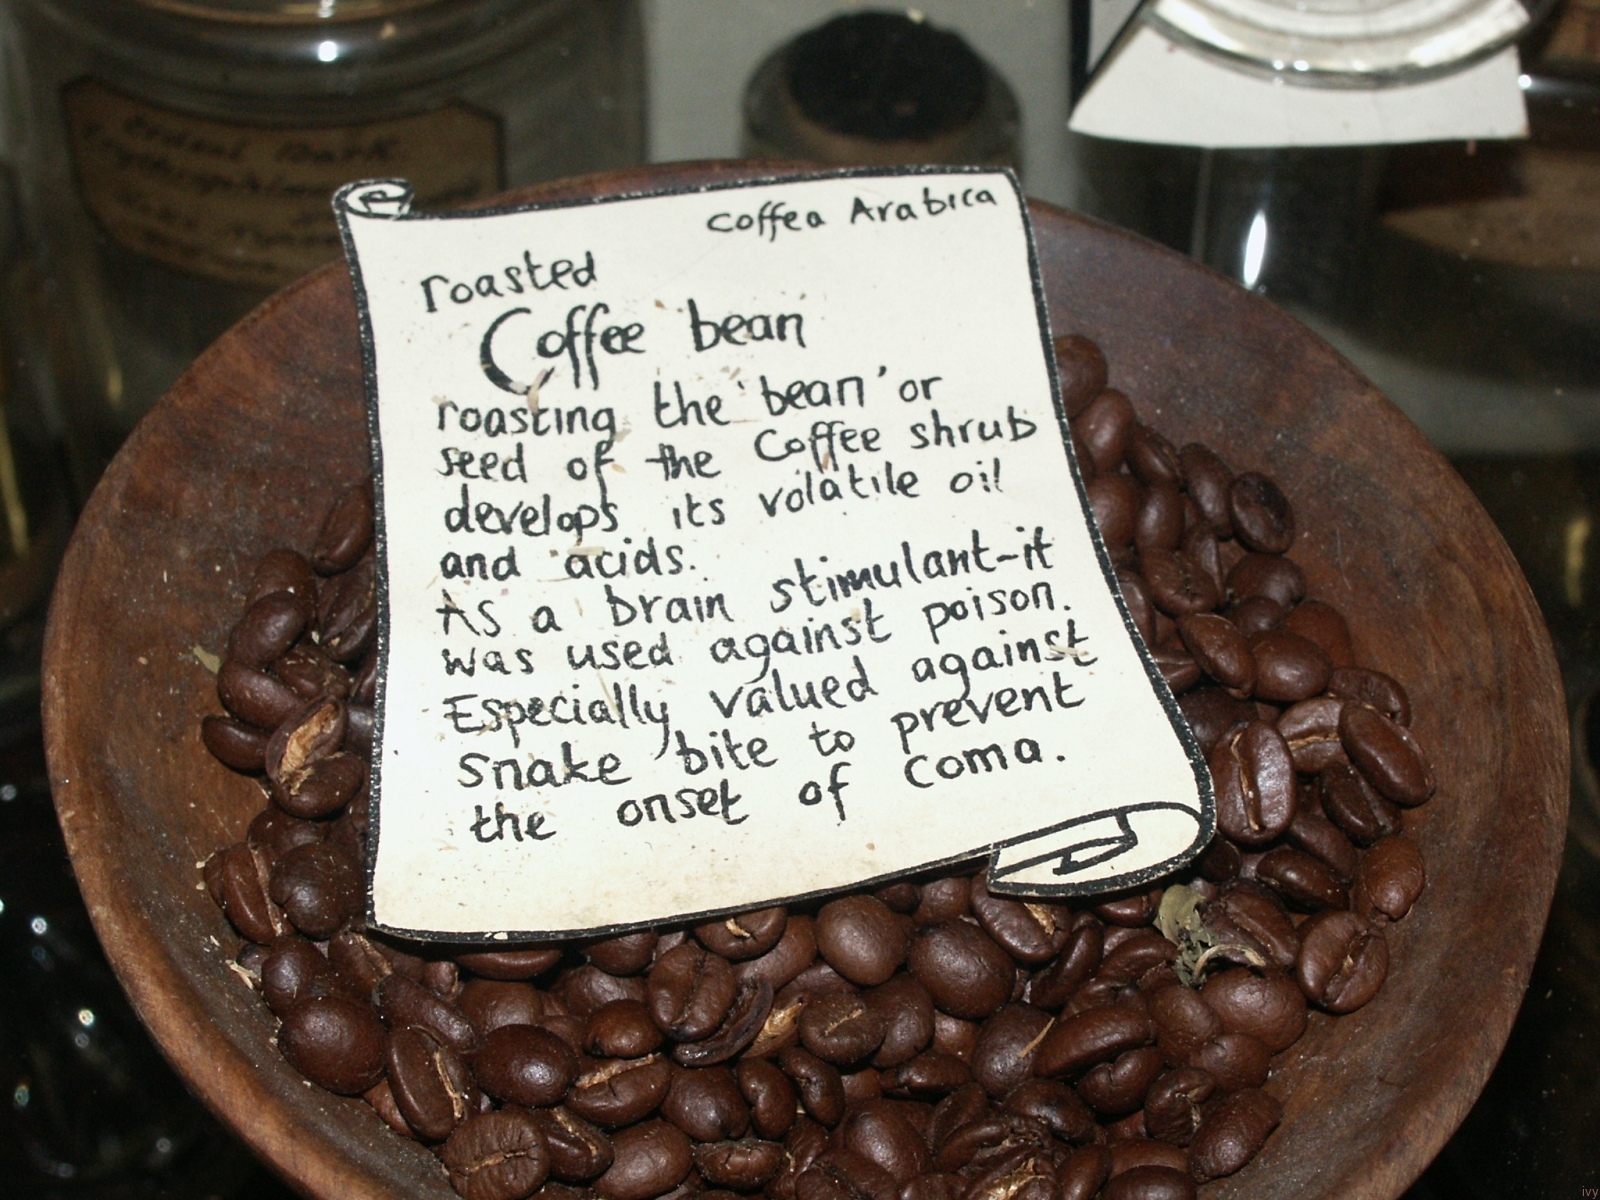 Coffea Arabica
roasted
Coffee bean
roasting the 'bean' or
seed of the Coffee shrub
develops its volatile oil
and acids.
As a brain stimulant-it
was used against poison.
Especially valued against
snake bite to prevent
the onset of coma.
ivy